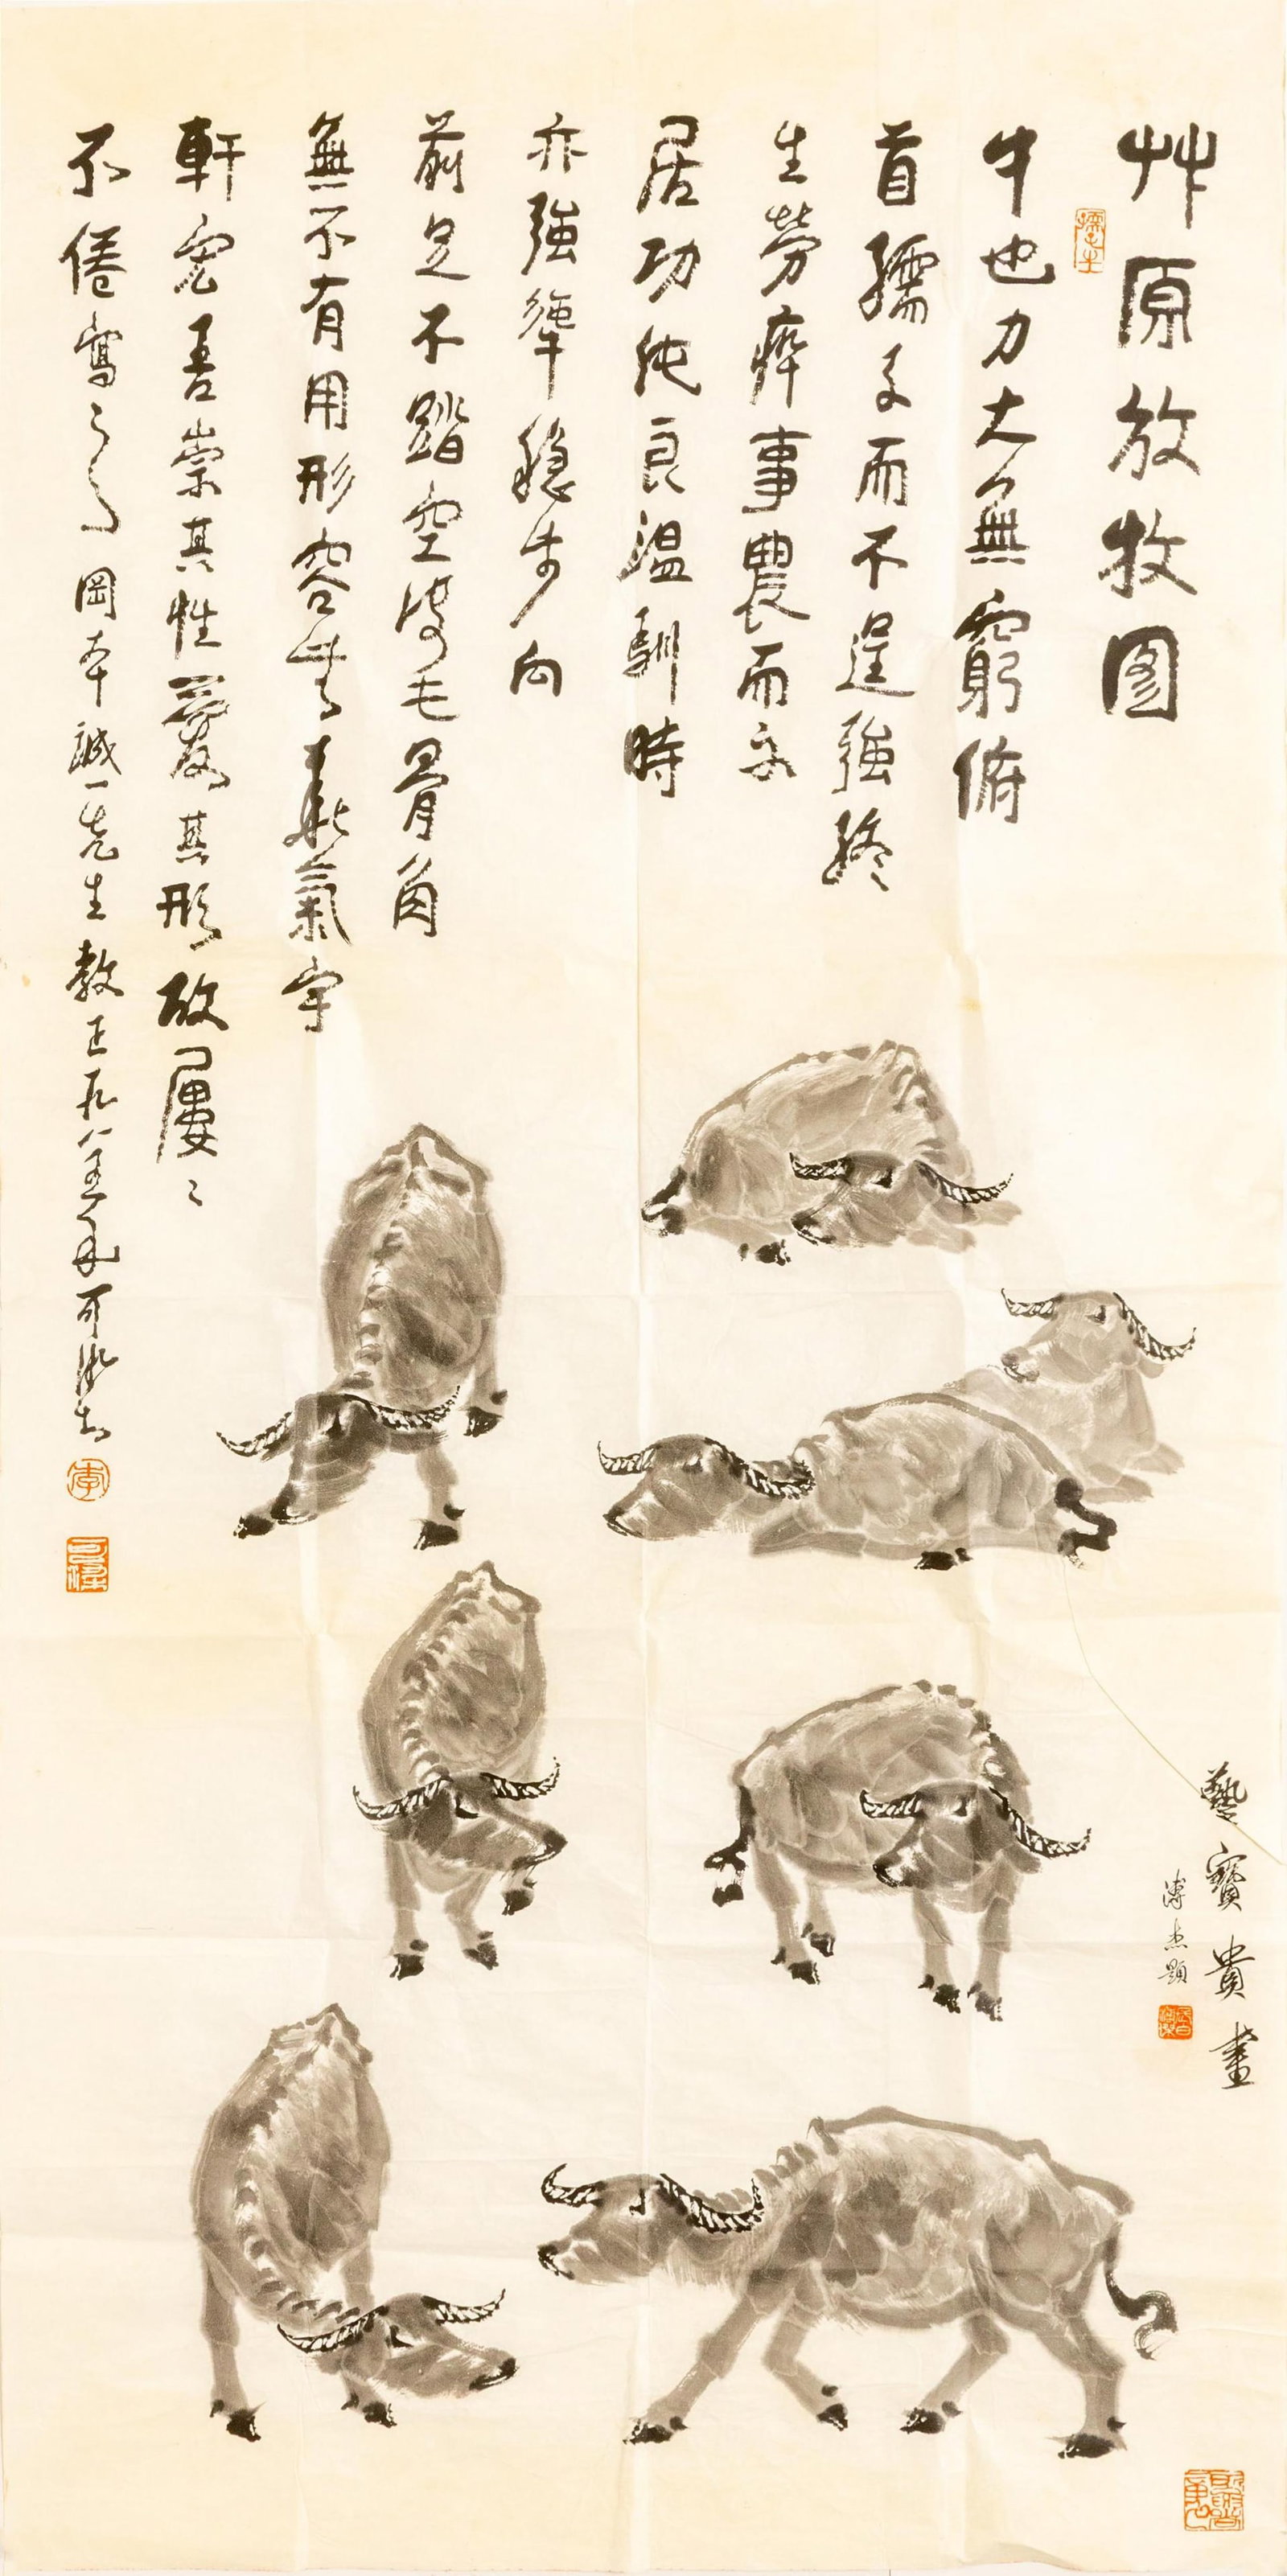 艸原放牧图
牛也力大無窮俯
首孺子而不逞強終
生勞瘁事農而安
居功純良溫馴時
亦強犟穩步向
前足不踏空皮毛骨角
無不有用形容無華氣宇
軒宏吾崇其性愛其形故屢々
不倦寫之 岡本誠一先生教正 可染
藝寶貴畫
溥杰題